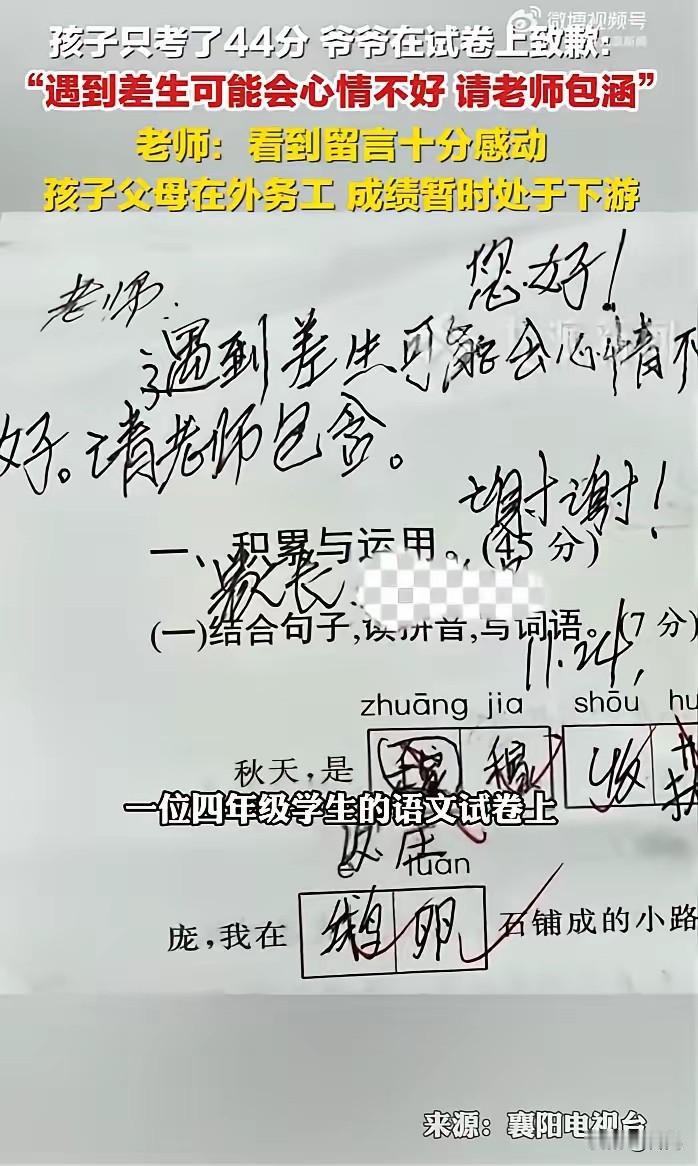 微博视频号
孩子只考了44分 爷爷在试卷上致歉:
“遇到差生可能会心情不好 请老师包涵”
老师：看到留言十分感动
孩子父母在外务工 成绩暂时处于下游
老师: 您好!
遇到差生可能会心情不
好。请老师包含。
谢谢!
一、积累与运用。(45 分)
家长
(一)结合句子,读拼音,写词语。(7 分)
11.24,
zhuāng jia shōu hu
秋天,是 稿 收
一位四年级学生的语文试卷上
庄
luǎn
鹅 卵
庞,我在 石铺成的小路
来源：襄阳电视台